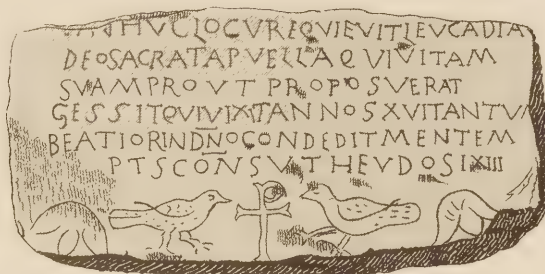 HVCLOCVREQVIEVITLEVCADIA
DEOSACRATAPVELLAQVIVITAM
SVAMPROVTPROPOSVERAT
GESSITQVIVIXTANNOSXVITANTV
BEATIORINDNOCONDEDITMENTEM
PTSCONSVTHEVDOSIXIII